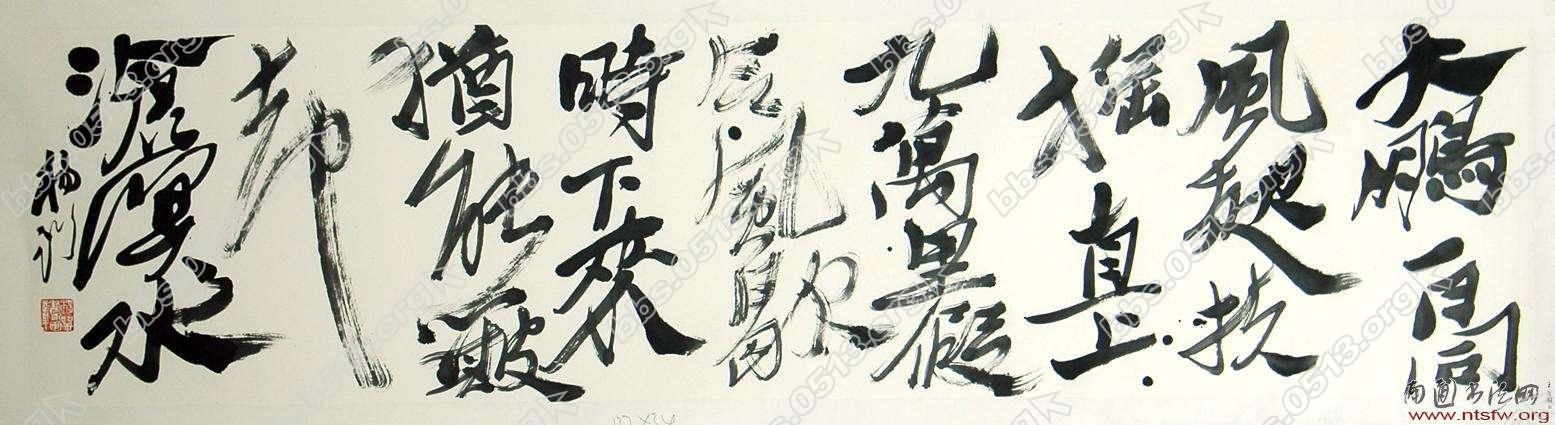 大鵬一日同
風起扶
搖直上
九萬里假
令風歇
時下來
猶能簸
却
滄溟水
南通书法网
www.ntsfw.org
bbs.0513.org